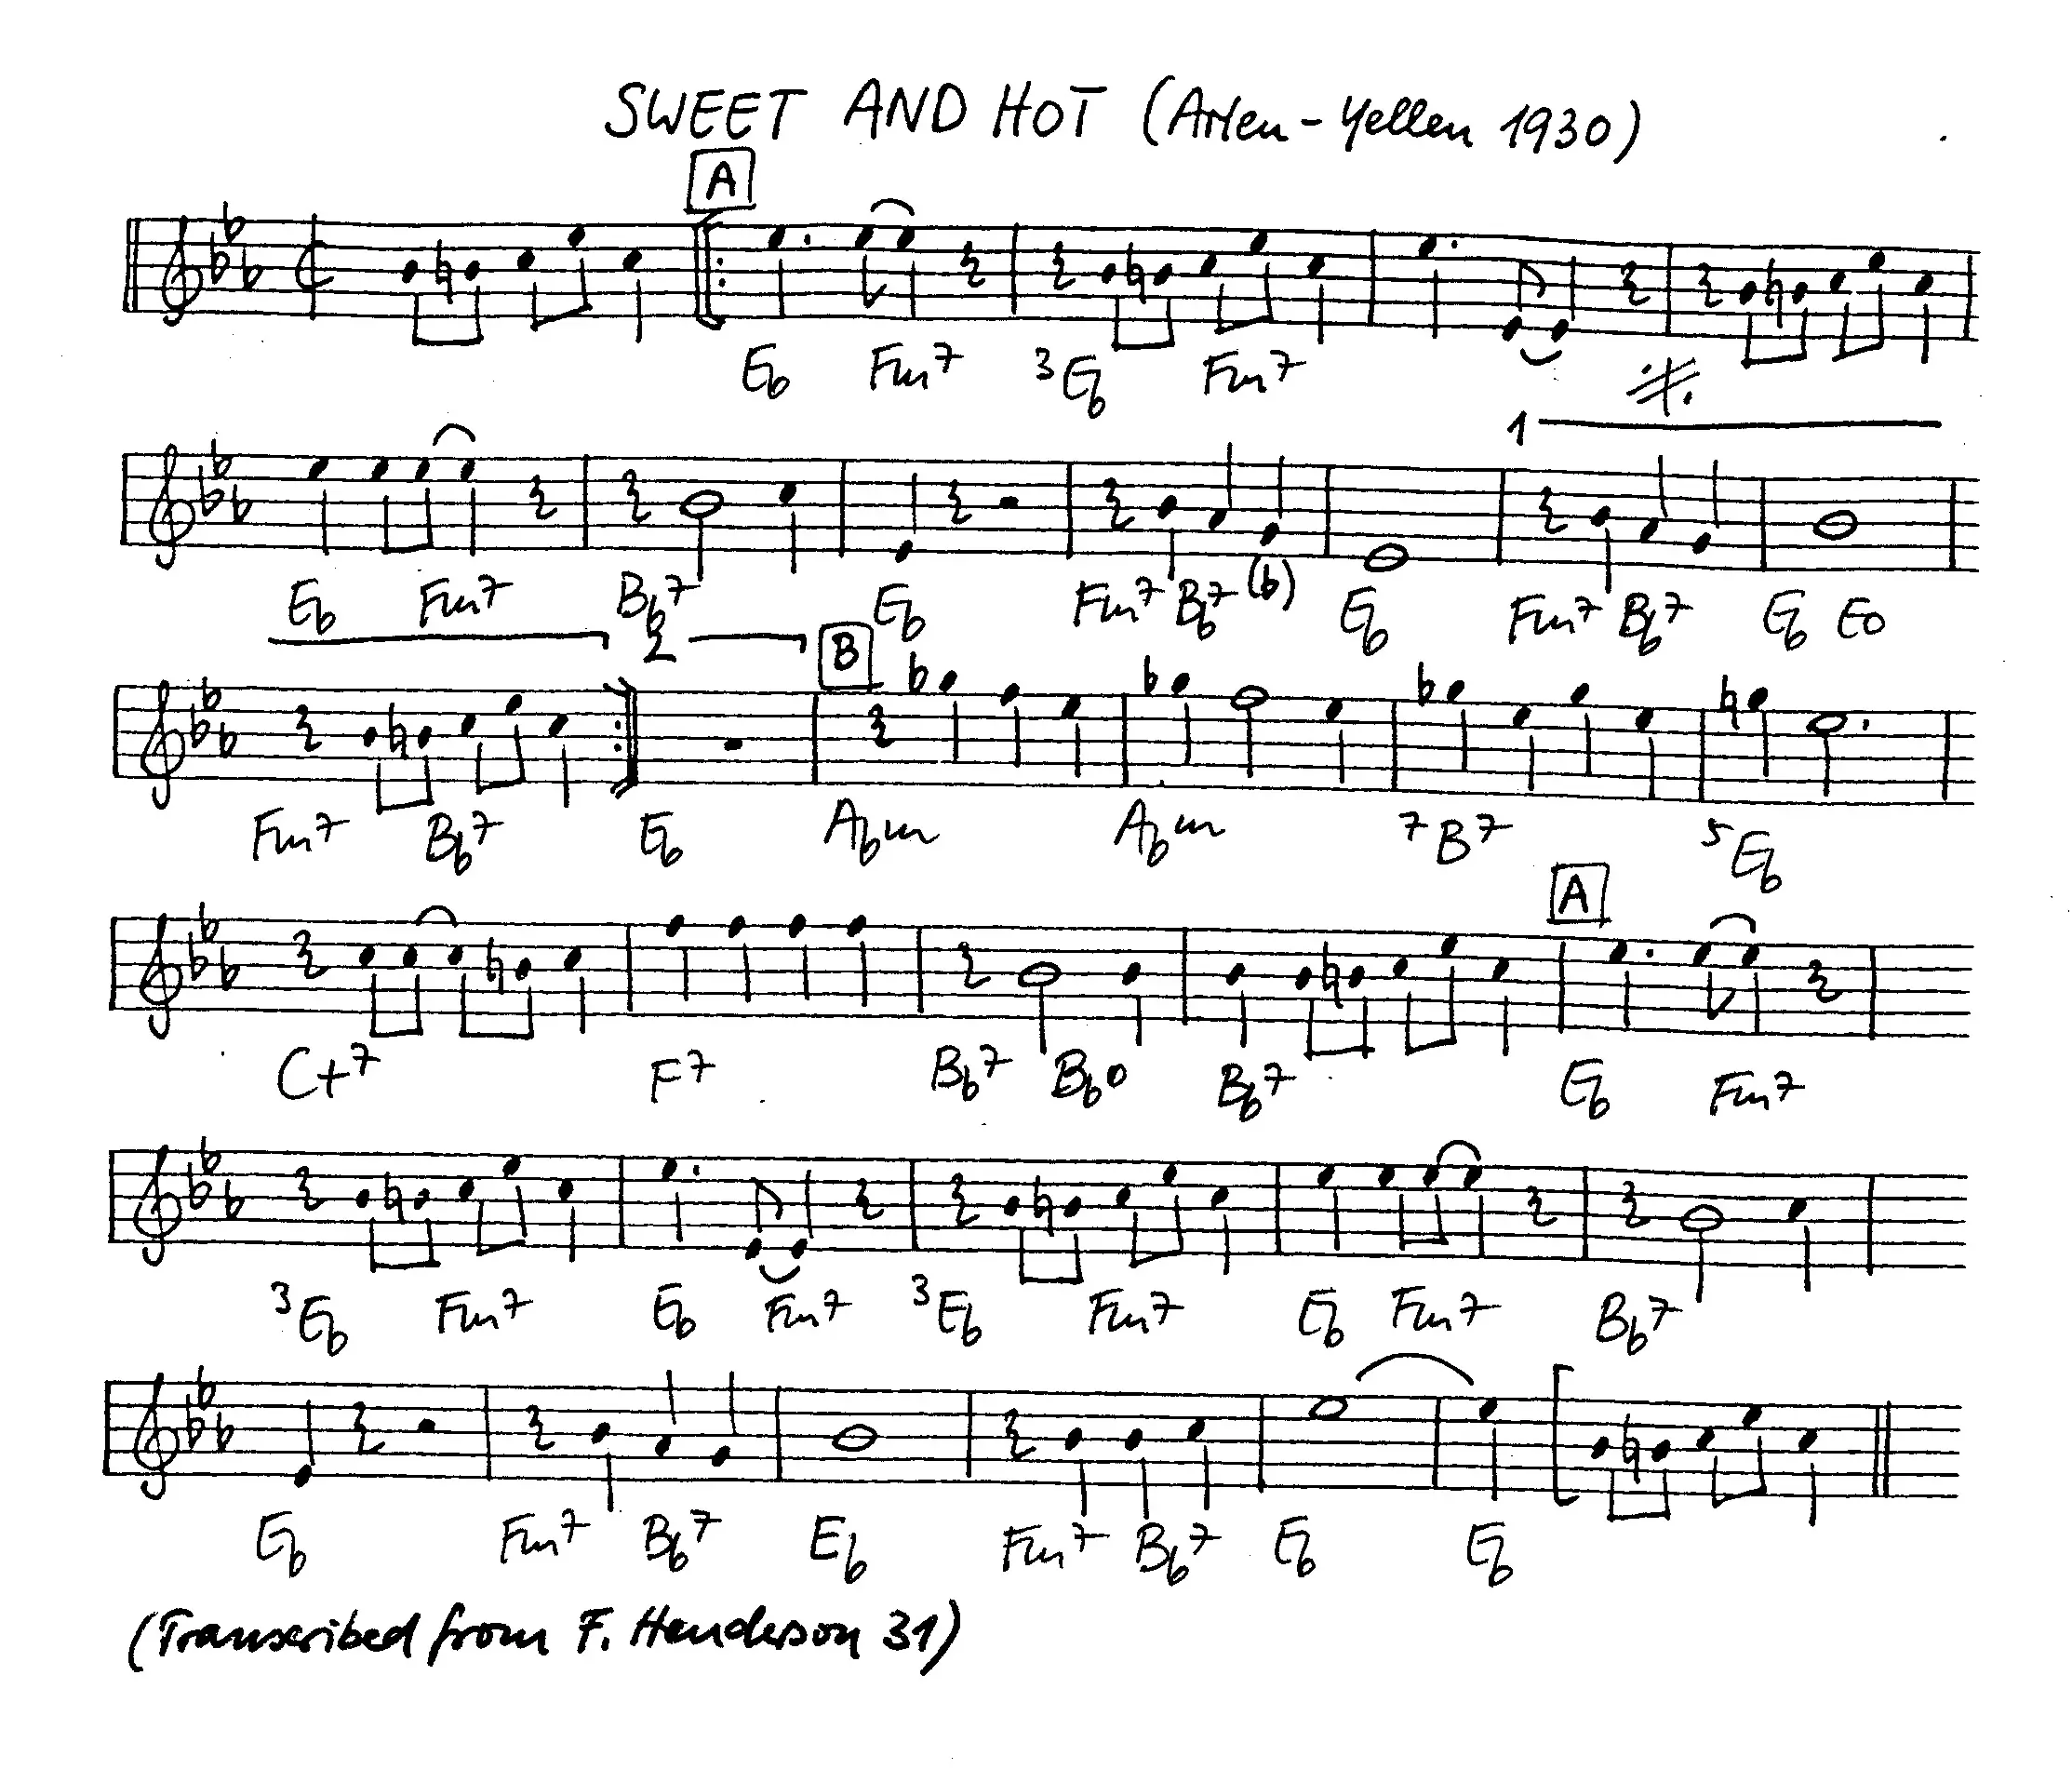 SWEET AND HOT (Arlen - Yellen 1930)
A
Eb Fm7 3Eb Fm7 ٪
1
Eb Fm7 Bb7 Eb Fm7 Bb7 (b) Eb Fm7 Bb7 Eb Eo
2 B
Fm7 Bb7 Eb Abm Abm 7B7 5Eb
A
C+7 F7 Bb7 Bbo Bb7 Eb Fm7
3Eb Fm7 Eb Fm7 3Eb Fm7 Eb Fm7 Bb7
Eb Fm7 Bb7 Eb Fm7 Bb7 Eb Eb
(Transcribed from F. Henderson 31)